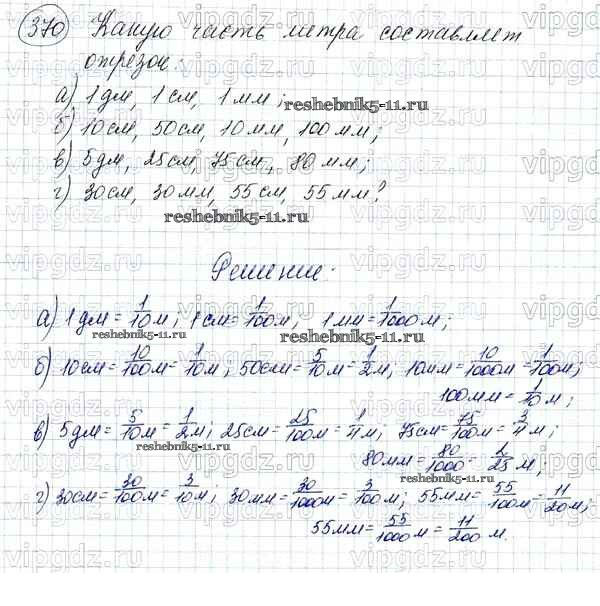 370 Какую часть метра составляет
отрезок:
а) 1 дм, 1 см, 1 мм;
reshebnik5-11.ru
б) 10 см, 50 см, 10 мм, 100 мм;
в) 5 дм, 25 см, 75 см, 80 мм;
г) 30 см, 30 мм, 55 см, 55 мм?
reshebnik5-11.ru
Решение:
а) 1 дм = 1/10 м; 1 см = 1/100 м, 1 мм = 1/1000 м;
reshebnik5-11.ru
reshebnik5-11.ru
б) 10 см = 10/100 м = 1/10 м; 50 см = 5/10 м = 1/2 м; 10 мм = 10/1000 м = 1/100 м;
100 мм = 1/10 м;
в) 5 дм = 5/10 м = 1/2 м; 25 см = 25/100 м = 1/4 м; 75 см = 75/100 м = 3/4 м;
reshebnik5-11.ru
80 мм = 80/1000 = 2/25 м;
г) 30 см = 30/100 м = 3/10 м; 30 мм = 30/1000 м = 3/100 м; 55 мм = 55/100 м = 11/20 м;
reshebnik5-11.ru
55 мм = 55/1000 м = 11/200 м.
vipgdz.ru